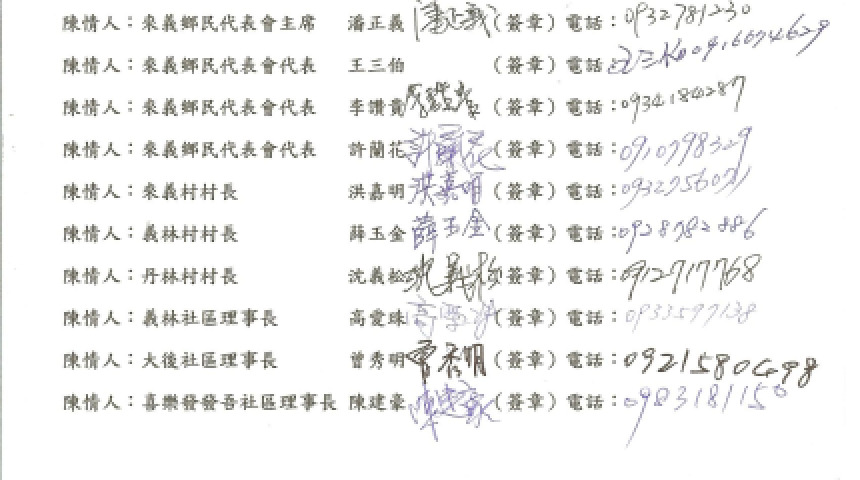 陳情人：來義鄉民代表會主席 潘正義 潘正義 (簽章) 電話：0932781230
陳情人：來義鄉民代表會代表 王三伯 (簽章) 電話：
陳情人：來義鄉民代表會代表 李讚貴 (簽章) 電話：0934184287
陳情人：來義鄉民代表會代表 許蘭花 許蘭花 (簽章) 電話：0910798329
陳情人：來義村村長 洪嘉明 洪嘉明 (簽章) 電話：
陳情人：義林村村長 薛玉金 薛玉金 (簽章) 電話：0928782886
陳情人：丹林村村長 沈義松 沈義松 (簽章) 電話：0912717768
陳情人：義林社區理事長 高愛珠 (簽章) 電話：0933597138
陳情人：大後社區理事長 曾秀明 曾秀明 (簽章) 電話：0921580498
陳情人：喜樂發發吾社區理事長 陳建豪 陳建豪 (簽章) 電話：0983181150